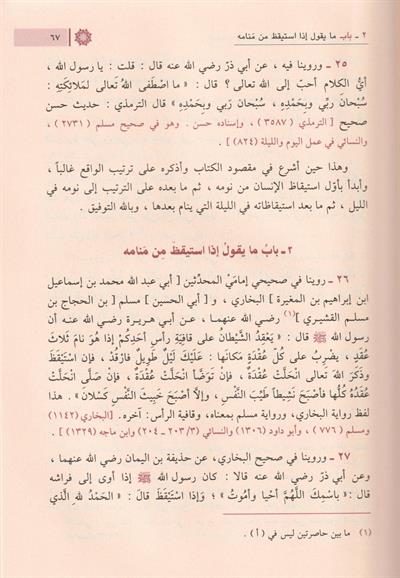 ٢ ـ باب ما يقول إذا استيقظ من مَنامه
٦٧
٢٥ ـ وروينا فيه ، عن أبي ذرّ رضي الله عنه قال : قلت : يا رسول الله ،
أيُّ الكلام أحبّ إلى الله تعالى ؟ قال : « ما اصْطَفى اللهُ تَعالى لمَلائِكَتِهِ :
سُبْحانَ ربِّي وبِحَمْدِهِ ، سُبْحَان رَبي وبحَمْدِهِ » قال الترمذي : حديث حسن
صحيح [ الترمذي ( ٣٥٨٧ ) ، وإسناده حسن . وهو في صحيح مسلم ( ٢٧٣١ ) ،
والنسائي في عمل اليوم والليلة (٨٢٤) ] .
وهذا حين أشرع في مقصود الكتاب وأذكره على ترتيب الواقع غالباً ،
وأبدأ بأوّل استيقاظ الإنسان من نومه ، ثم ما بعده على الترتيب إلى نومه في
الليل ، ثم ما بعد استيقاظاته في الليلة التي ينام بعدها ، وبالله التوفيق .
٢ ـ بابُ ما يقولُ إذا استيقظَ مِن مَنامه
٢٦ ـ روينا في صحيحي إمامَيْ المحدِّثين [ أبي عبد الله محمد بن إسماعيل
ابن إبراهيم بن المغيرة ] البخاري ، و [ أبي الحسين ] مسلم [ بن الحجاج بن
مسلم القشيري ](١) رضي الله عنهما ، عن أبي هريرة رضي الله عنه أن
رسول الله ﷺ قال : « يَعْقِدُ الشَّيْطانُ على قافِيَةِ رأسِ أحَدِكُمْ إذا هُوَ نَامَ ثَلاثَ
عُقَدٍ ، يَضْرِبُ على كُلّ عُقْدَةٍ مَكانَها : عَلَيْكَ لَيْلٌ طَوِيلٌ فارْقُدْ ، فإن اسْتَيْقَظَ
وذَكَرَ اللهَ تعالى انْحَلَّتْ عُقْدَةٌ ، فإن تَوَضّأ انْحَلَّتْ عُقْدَةٌ ، فإن صَلَّى انْحَلَّتْ
عُقَدُهُ كُلُّها فأصْبَحَ نَشِيطاً طَيِّبَ النَّفْسِ ، وإلاَّ أصْبَحَ خَبِيثَ النَّفْسِ كَسْلانَ » هذا
لفظ رواية البخاري ، ورواية مسلم بمعناه، وقافية الرأس: آخره. [البخاري (١١٤٢)
ومسلم (٧٧٦) ، وأبو داود (١٣٠٦) والنسائي (٢٠٣/٣ ـ ٢٠٤) وابن ماجه (١٣٢٩) ] .
٢٧ ـ وروينا في صحيح البخاري، عن حذيفة بن اليمان رضي الله عنهما ،
وعن أبي ذر رضي الله عنه قالا : كان رسول الله ﷺ إذا أوى إلى فراشه
قال : « باسْمِكَ اللَّهُمَّ أحْيا وأمُوتُ » ؛ وَإذا اسْتَيْقَظَ قالَ : « الحَمْدُ لله الَّذي
(١) ما بين حاصرتين ليس في (أ) .